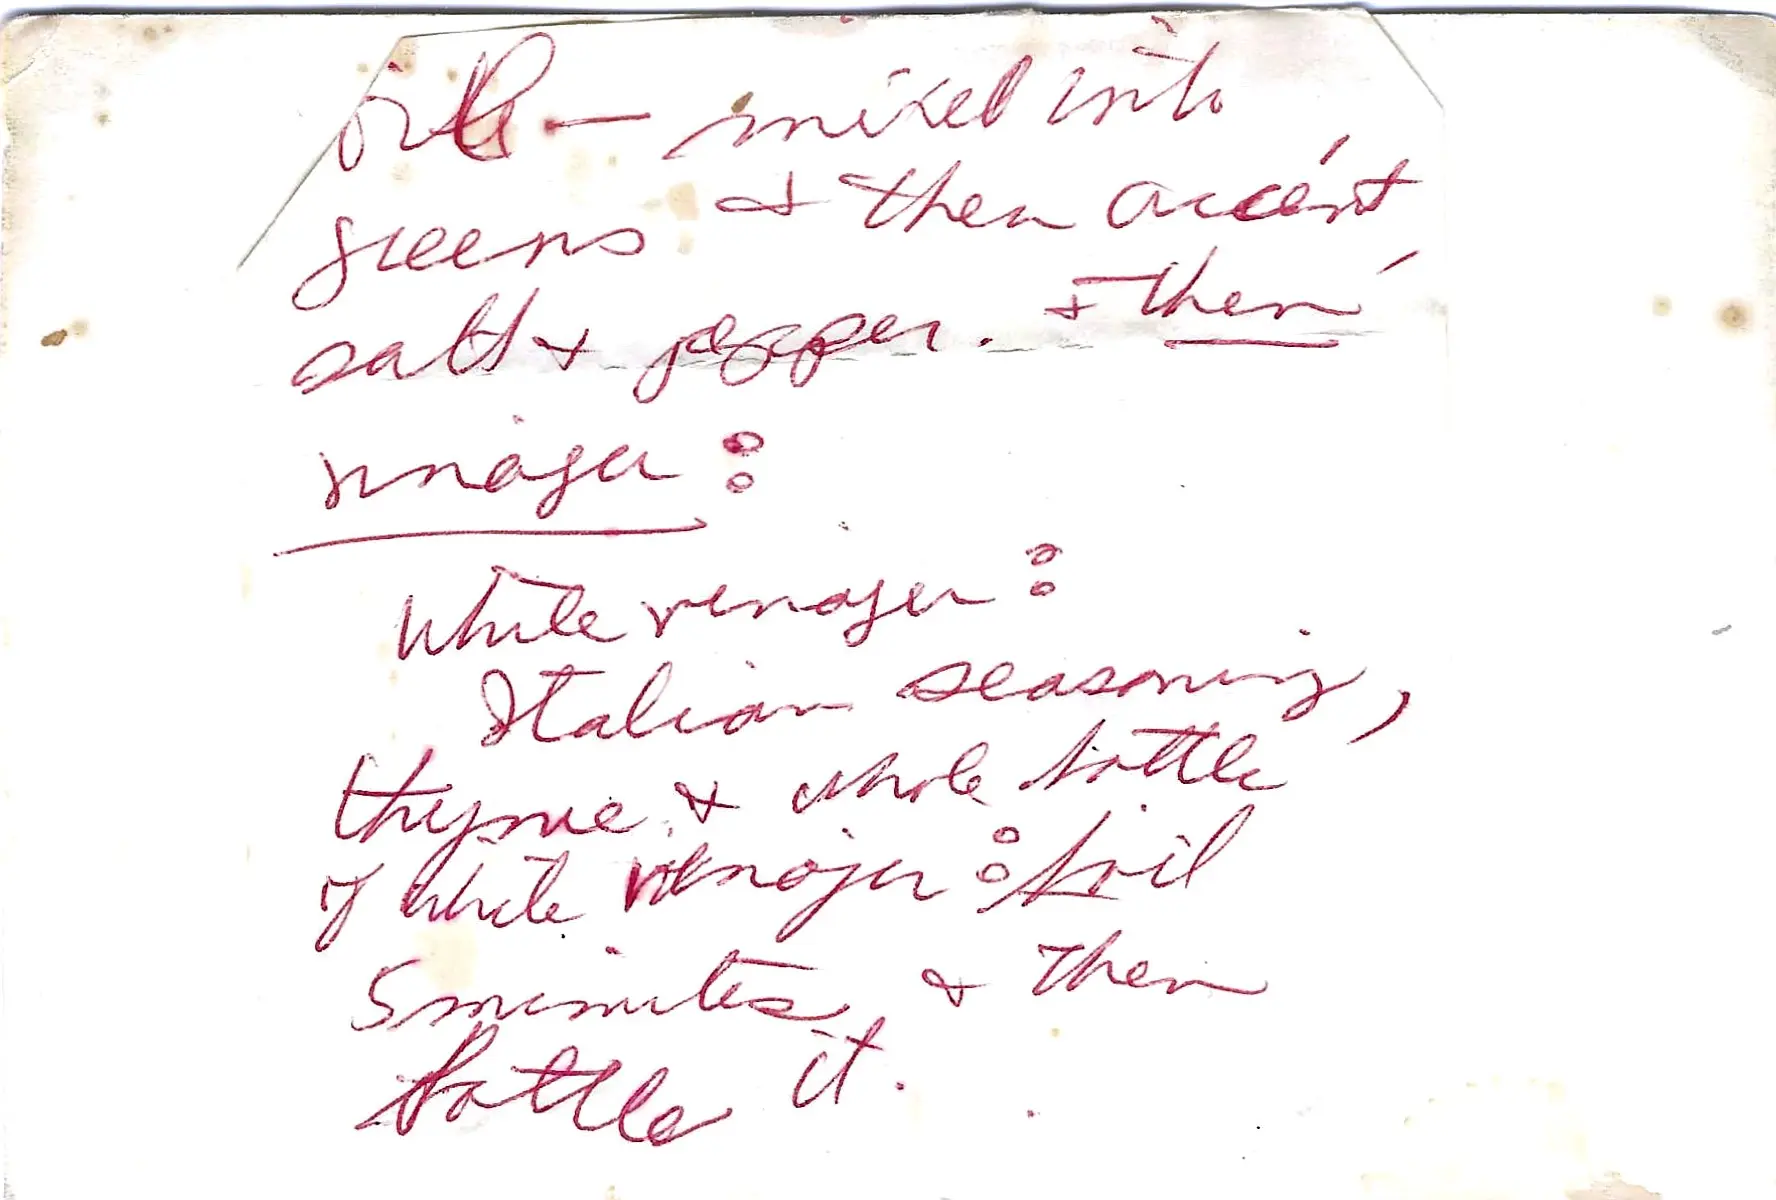 oil — mixed into
greens & then accent,
salt & pepper. & then
vinager:
White venager:
Italian seasoning,
thyme & whole bottle
of white venager: boil
5 minutes & then
bottle it.